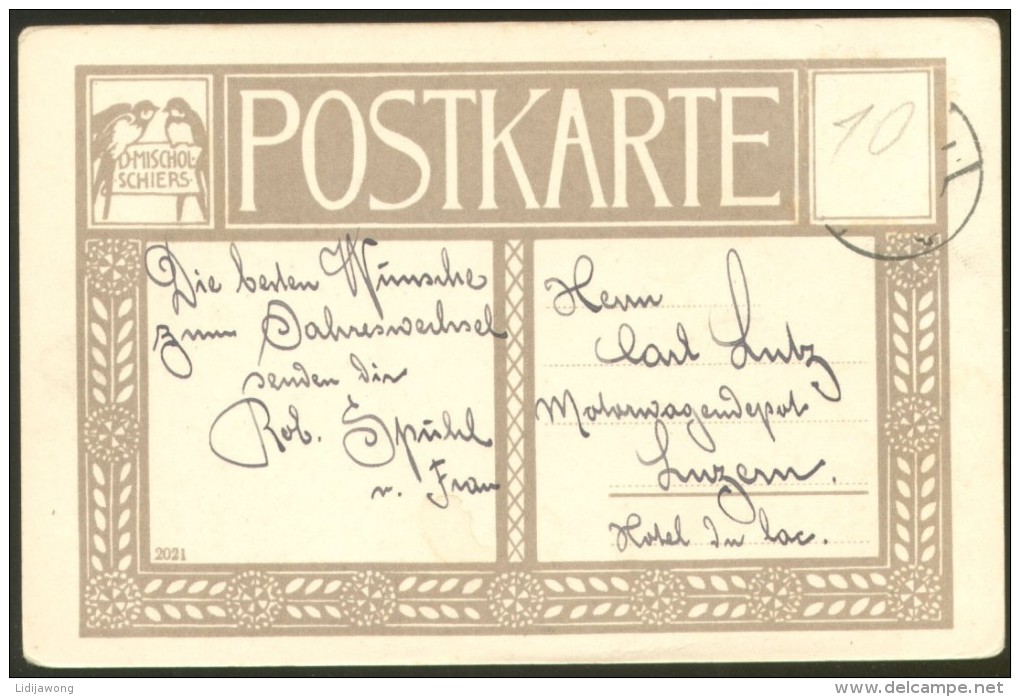 D. MISCHOL
SCHIERS
POSTKARTE
10
Die besten Wünsche
zum Jahreswechsel
senden dir
Rob. Spühl
u. Frau
2021
Herrn
Carl Lutz
Motorwagendepot
Luzern.
Hotel du lac.
Lidijawong
delcampe.net